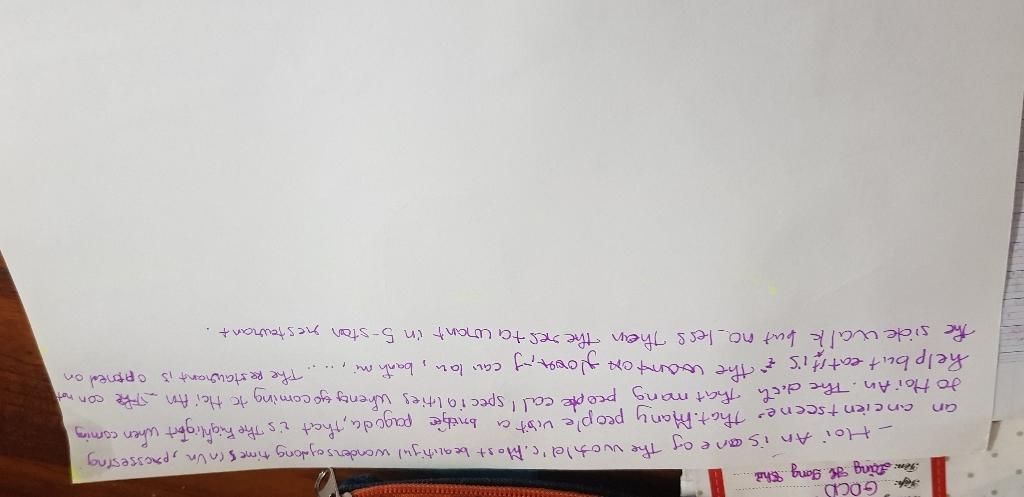 - Hoi An is one of the world's Most beautiful wonders of long times in Vn, processering
an ancient scene. That Many people visit a pagoda, that is the highlight when coming
to Hoi An. The dich that many people call specialities when coming to Hoi An - can not
help but eat it is the , cau lau, banh mi, .... The restaurant is opened on
the side walk but no less than the restaurant in 5-star restaurant.
GDCD